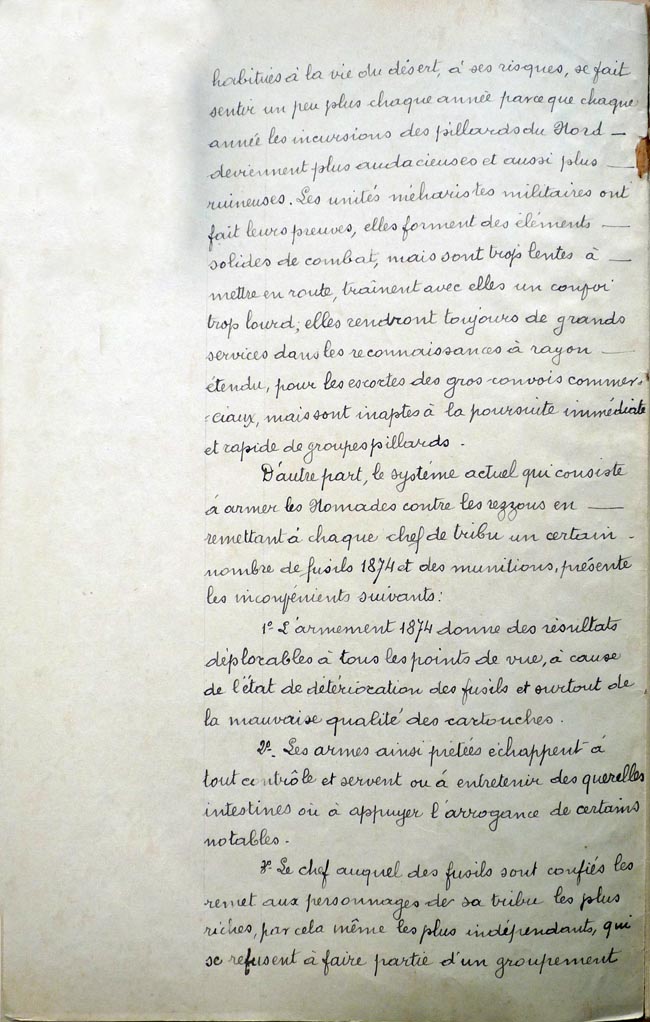 habitués à la vie du désert, à ses risques, se fait
sentir un peu plus chaque année parce que chaque
année les incursions des pillards du Nord —
deviennent plus audacieuses et aussi plus —
ruineuses. Les unités méharistes militaires ont
fait leurs preuves, elles forment des éléments —
solides de combat, mais sont trop lentes à —
mettre en route, traînent avec elles un convoi
trop lourd; elles rendront toujours de grands
services dans les reconnaissances à rayon —
étendu, pour les escortes des gros convois commer-
-ciaux, mais sont inaptes à la poursuite immédiate
et rapide de groupes pillards.
D'autre part, le système actuel qui consiste
à armer les Nomades contre les rezzous en —
remettant à chaque chef de tribu un certain -
nombre de fusils 1874 et des munitions, présente
les inconvénients suivants:
1º L'armement 1874 donne des résultats
déplorables à tous les points de vue, à cause
de l'état de détérioration des fusils et surtout de
la mauvaise qualité des cartouches.
2º. Les armes ainsi prêtées échappent à
tout contrôle et servent ou à entretenir des querelles
intestines où à appuyer l'arrogance de certains
notables.
3º Le chef auquel des fusils sont confiés les
remet aux personnages de sa tribu les plus
riches, par cela même les plus indépendants, qui
se refusent à faire partie d'un groupement